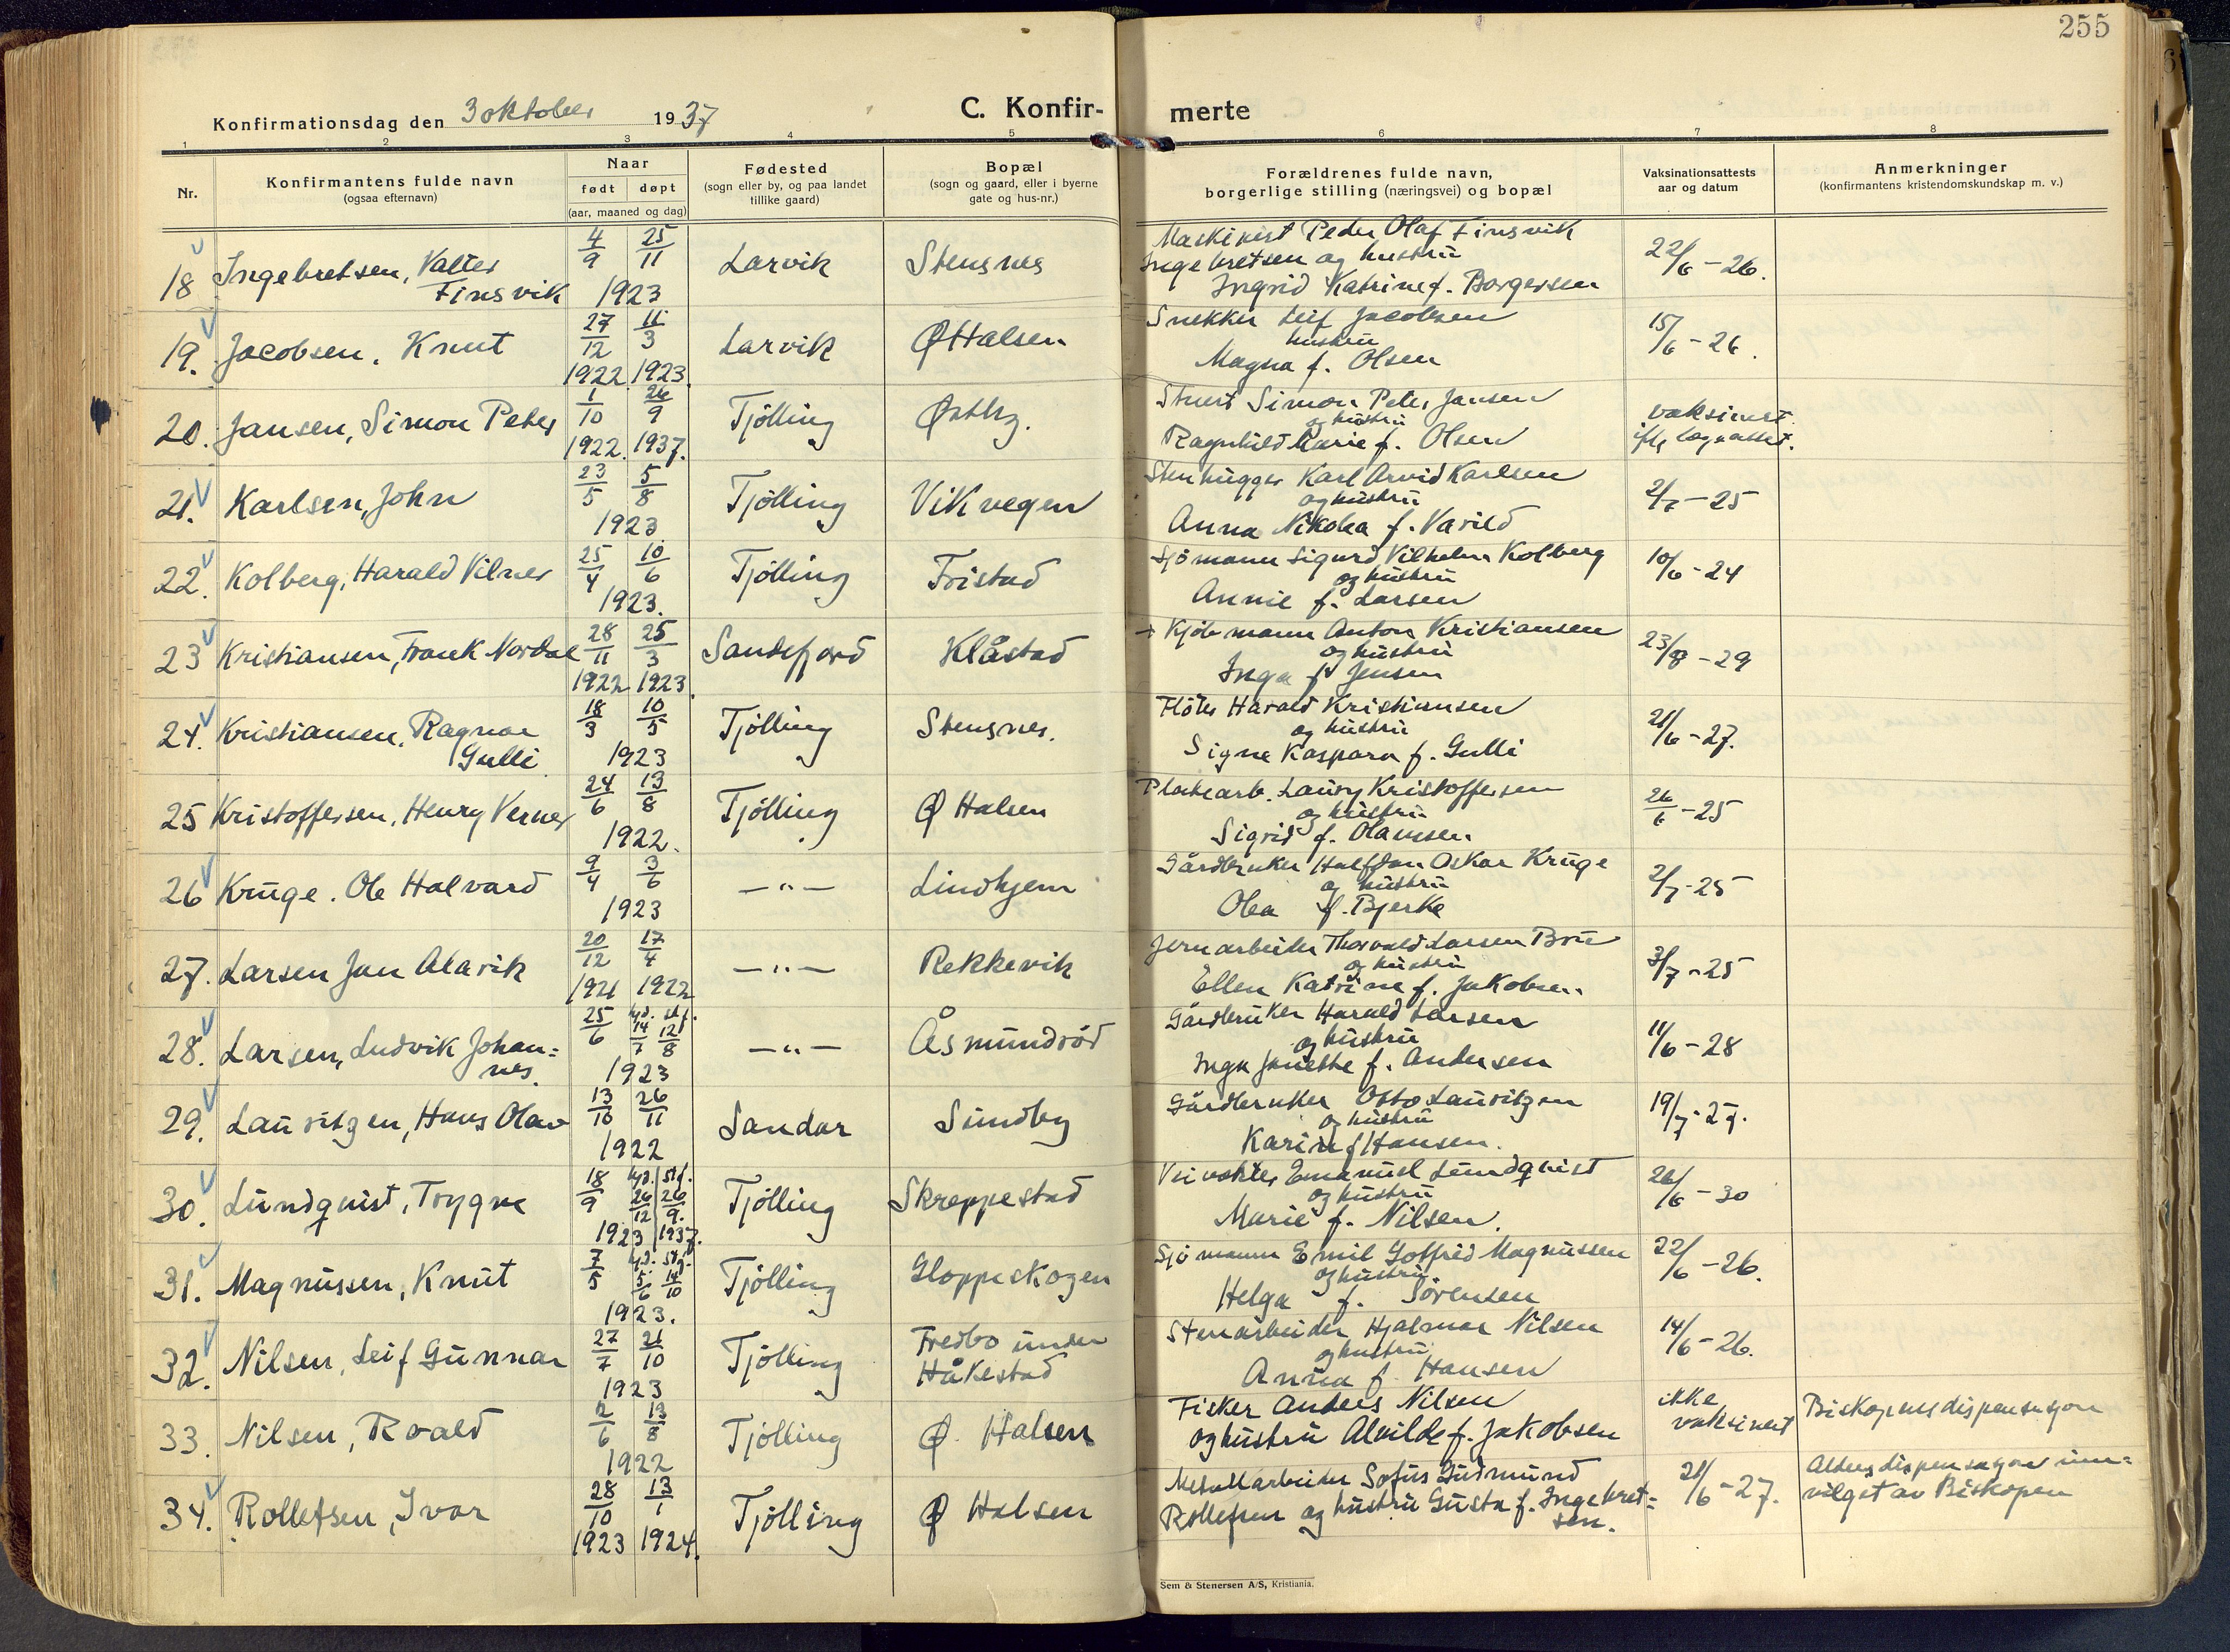 255
Konfirmationsdag den 3 oktober 1937
C. Konfir-
merte
1 2 3 4 5 6 7 8
Nr.
Konfirmantens fulde navn
(ogsaa efternavn)
Naar
født døpt
(aar, maaned og dag)
Fødested
(sogn eller by, og paa landet
tillike gaard)
Bopæl
(sogn og gaard, eller i byerne
gate og hus-nr.)
Forældrenes fulde navn,
borgerlige stilling (næringsvei) og bopæl
Vaksinationsattests
aar og datum
Anmerkninger
(konfirmantens kristendomskundskap m. v.)
18 Ingebretsen, Valter
Finsvik
4/9 25/11
1923
Larvik
Stensnes
Maskinist Peder Olaf Finsvik
Ingebretsen og hustru
Ingrid Katrine f. Borgersen
22/6 - 26.
19. Jacobsen, Knut
27/12 11/3
1922 1923
Larvik
Ø Halsen
Snekker Leif Jacobsen
hustru
Magna f. Olsen
15/6 - 26.
20. Jansen, Simon Peter
1/10 26/9
1922. 1937.
Tjölling
Østby.
Stuert Simon Peter Jansen
og hustru
Ragnhild Marie f. Olsen
vaksinert
21. Karlsen, John
23/5 5/8
1923
Tjölling
Vikvegen
Stenhugger Karl Arvid Karlsen
og hustru
Anna Nikolea f. Varild
2/7 - 25
22. Kolberg, Harald Vilner
25/4 10/6
1923.
Tjölling
Tristad
Sjömann Sigurd Vilhelm Kolberg
og hustru
Annie f. Larsen
10/6 - 24
23 Kristiansen, Frank Nordal
28/11 25/3
1922 1923
Sandefjord
Klåstad
+ Kjöbmann Anton Kristiansen
og hustru
Inga f. Jensen
23/8 - 29
24. Kristiansen, Ragnar
Gulli
18/3 10/5
1923
Tjölling
Stensnes.
Flöter Harald Kristiansen
og hustru
Signe Kaspara f. Gulli
21/6 - 27.
25 Kristoffersen, Henry Verner
24/6 13/8
1922.
Tjölling
Ø Halsen
Platearb. Laury Kristoffersen
og hustru
Sigrid f. Olaussen
26/6 - 25
26 Kruge. Ole Halvard
9/4 3/6
1923
— " —
Lindhjem
Gårdbruker Halfdan Oskar Kruge
og hustru
Olea f. Bjerke
2/7 - 25
27. Larsen Jan Alarik
20/12 17/4
1921 1922
— " —
Rekkevik
Jernarbeider Thorvald Larsen Bru
og hustru
Ellen Katrine f. Jakobsen
3/7 - 25
28. Larsen, Ludvik Johan=
nes.
25/6 hjd. stf.
14/7 12/8
1923
— " —
Åsmundröd
Gårdbruker Harald Larsen
og hustru
Inga Janette f. Andersen
11/6 - 28
29. Lauritzen, Hans Olav
13/10 26/11
1922
Sandar
Sundby
Gårdbruker Otto Lauritzen
og hustru
Karin f Hansen.
19/7 - 27.
30. Lundquist, Trygve
18/9 hjd. stf.
26/12 26/9.
1923 1937.
Tjölling
Skreppestad
Veivokter Emanuel Lundquist
og hustru
Marie f. Nilsen.
26/6 - 30
31. Magnussen, Knut
7/5 hjd. stf.
5/6 14/10
1923.
Tjölling
Gloppeskogen
Sjömann Emil Gotfred Magnussen
og hustru
Helga f. Sörensen
22/6 - 26.
32. Nilsen, Leif Gunnar
27/7 21/10
1923
Tjölling
Fredbo under
Håkestad
Stenarbeider Hjalmar Nilsen
og hustru
Anna f. Hansen
14/6 - 26.
33. Nilsen, Roald
2/6 13/8
1922
Tjölling
Ø. Halsen
Fisker Anders Nilsen
og hustru Alvilde f. Jakobsen
ikke
vaksinert
Biskopens dispensasjon
34. Rollefsen, Ivar
28/10 13/1
1923 1924.
Tjölling
Ø Halsen
Metallarbeider Sofus Gudmund
Rollefsen og hustru Gusta f. Ingebret=
sen.
21/6 - 27.
Aldersdispensasjon inn=
vilget av Biskopen
Sem & Stenersen A/S, Kristiania.